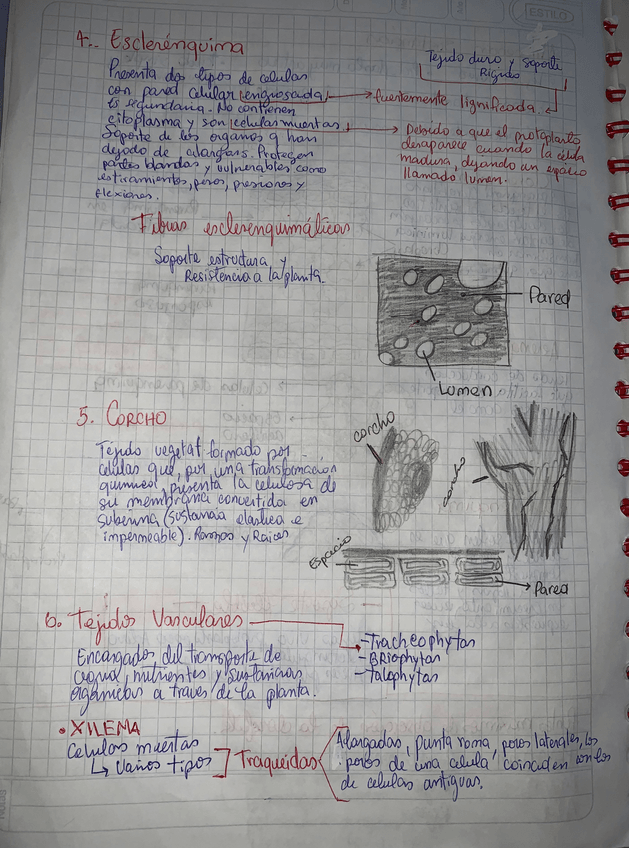 4.. Esclerénquima
Presenta dos tipos de celulas
con pared celular engrosada
Es segundaria. No contienen
citoplasma y son celulas muertas
Soporte de los organos q han
dejado de alargars. Protegen
partes blandas y vulnerables como
estiramientos, pesos, presiones y
flexiones.
Tejido duro y soporte
Rigido
fuertemente lignificada.
Debido a que el protoplasto
desaparece cuando la celula
madura, dejando un espacio
llamado lumen.
Fibras esclerenquimáticas
Soporte estructura y
Resistencia a la planta.
Pared
Lumen
5. CORCHO
Tejido vegetal formado por
celulas que, por una transformacion
quimica, presenta la celulosa de
su membrana convertida en
suberina (sustancia elastica e
impermeable). Ramas y Raices
corcho
corcho
Espacio
Pared
6. Tejidos Vasculares
Encargados del transporte de
agua, nutrientes y sustancias
organicas a traves de la planta.
-Tracheophytas
-BRiophytas
-Talophytas
• XILEMA
Celulas muertas
↳ Varios tipos
Traqueidas
Alargadas, punta roma, poros laterales, los
poros de una celula coinciden con los
de celulas antiguas.
ESTILO